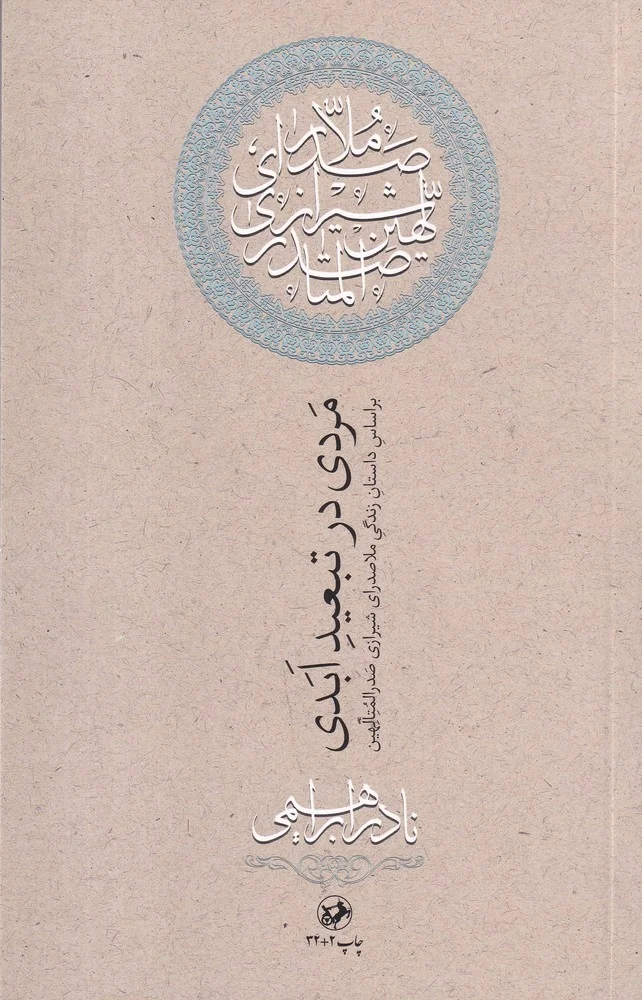 مُلّا
صَدرایِ
شیرازی
صدرالمتالّهین
مَردی در تبعیدِ اَبَدی
براساسِ داستانِ زندگیِ ملاصدرای شیرازی صَدرالمُتالّهین
نادر ابراهیمی
چاپ ۲+۳۲